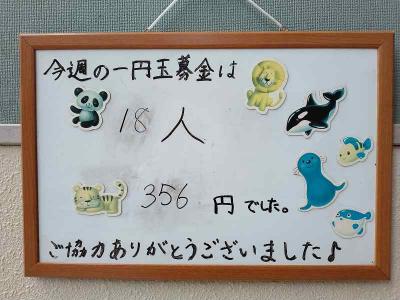 今週の一円玉募金は
18人
356円でした。
ご協力ありがとうございました♪